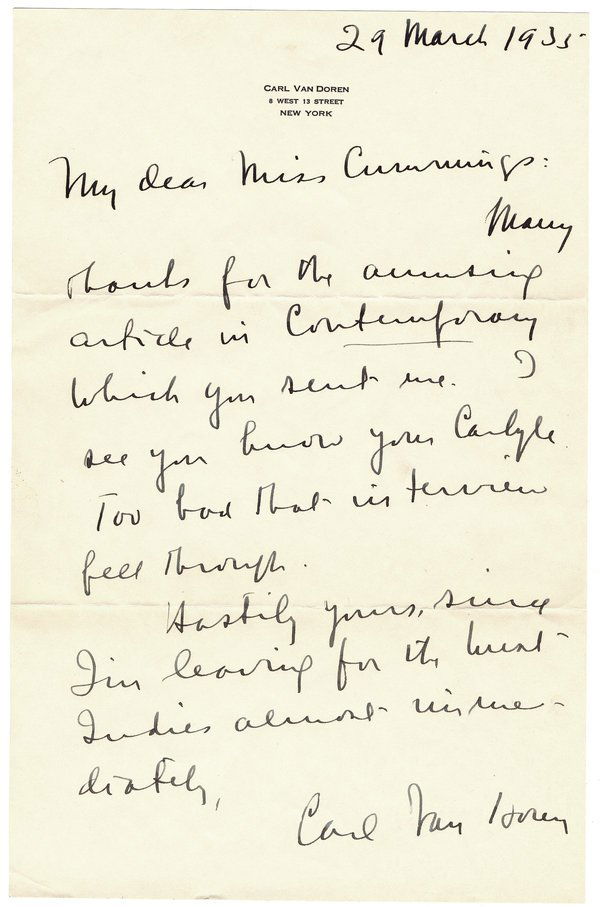 29 March 1935
CARL VAN DOREN
8 WEST 13 STREET
NEW YORK
My dear Miss Cummings:
Many
thanks for the amusing
article in Contemporary
which you sent me. I
see you know your Carlyle.
Too bad that interview
fell through.
Hastily yours, since
I'm leaving for the West
Indies almost imme-
diately,
Carl Van Doren